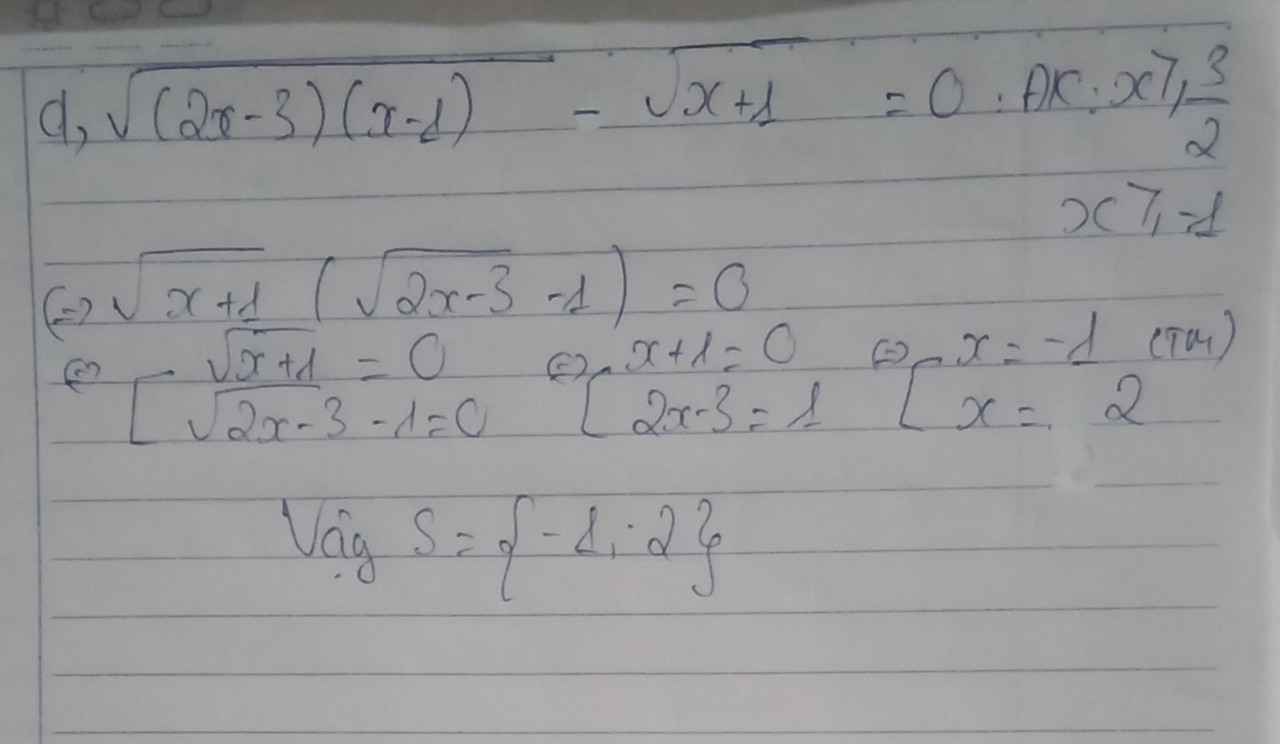 d, √(2x-3)(x-1) - √x+1 = 0 . ĐK: x ⩾ 3/2
x ⩾ -1
(=) √x+1 (√2x-3 -1) = 0
(=) [ √x+1 = 0 (=) [ x+1=0 (=) [ x = -1 (TM)
√2x-3 -1=0 2x-3=1 x = 2
Vậy S = {-1; 2}